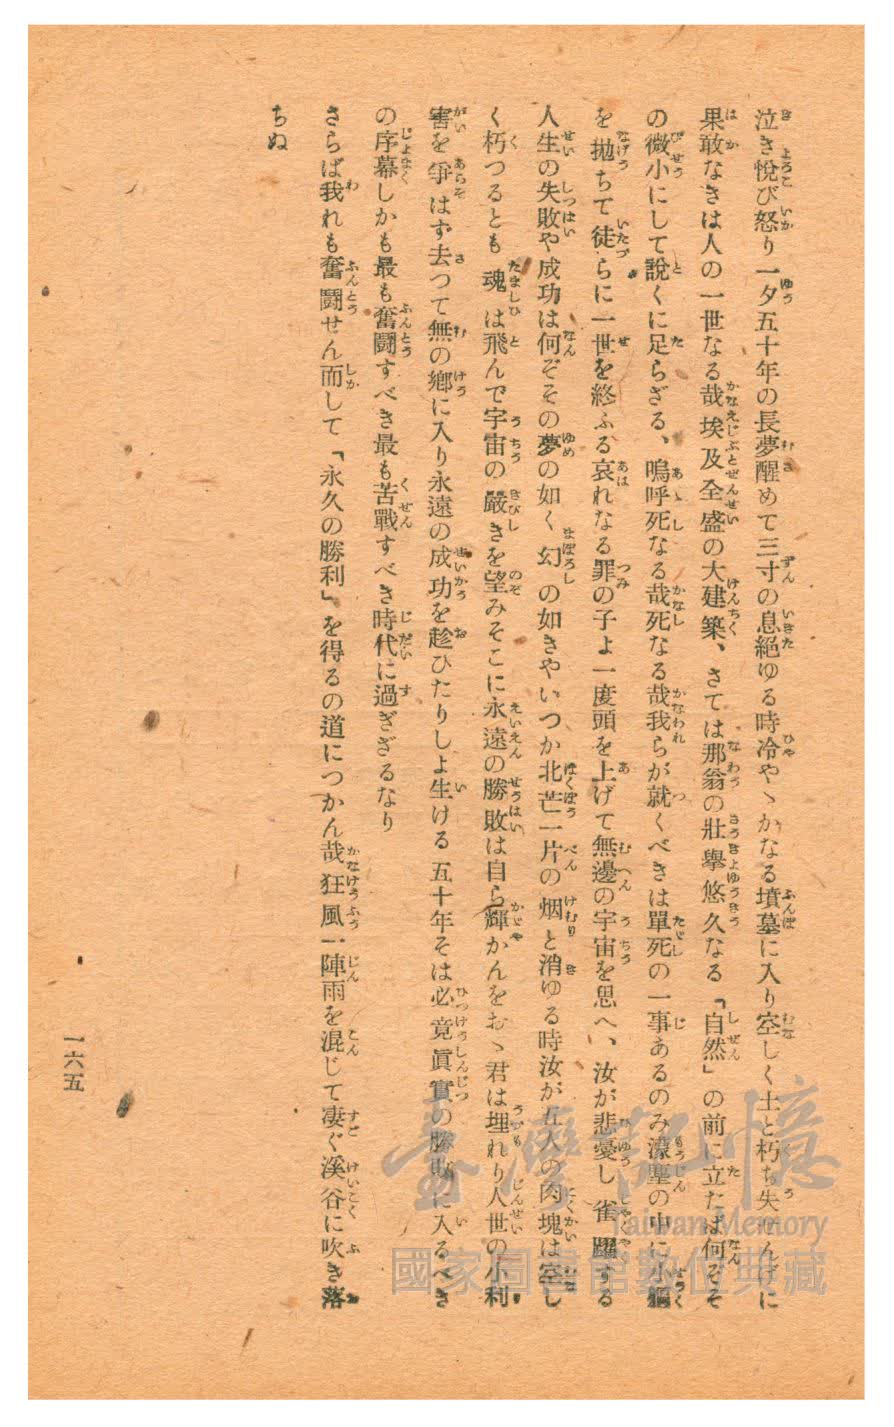 泣き悅び怒り一夕五十年の長夢醒めて三寸の息絕ゆる時冷やゝかなる墳墓に入り空しく土と朽ち失せんげに
果敢なきは人の一世なる哉埃及全盛の大建築、さては那翁の壯擧悠久なる「自然」の前に立たば何ぞそ
の微小にして說くに足らざる、嗚呼死なる哉死なる哉我らが就くべきは單死の一事あるのみ濛塵の中に小軀
を拋ちて徒らに一世を終ふる哀れなる罪の子よ一度頭を上げて無邊の宇宙を思へ、汝が悲憂し雀躍する
人生の失敗や成功は何ぞその夢の如く幻の如きやいつか北芒一片の烟と消ゆる時汝が五人の肉塊は空し
く朽つるとも魂は飛んで宇宙の嚴きを望みそこに永遠の勝敗は自ら輝かんをおゝ君は埋れり人世の小利
害を爭はず去つて無の鄕に入り永遠の成功を趁ひたりしよ生ける五十年そは必竟眞實の勝敗に入るべき
の序幕しかも最も奮鬪すべき最も苦戰すべき時代に過ぎざるなり
さらば我れも奮鬪せん而して「永久の勝利」を得るの道につかん哉狂風一陣雨を混じて凄ぐ溪谷に吹き落
ちぬ
一六五
臺灣記憶
Taiwan Memory
國家圖書館數位典藏